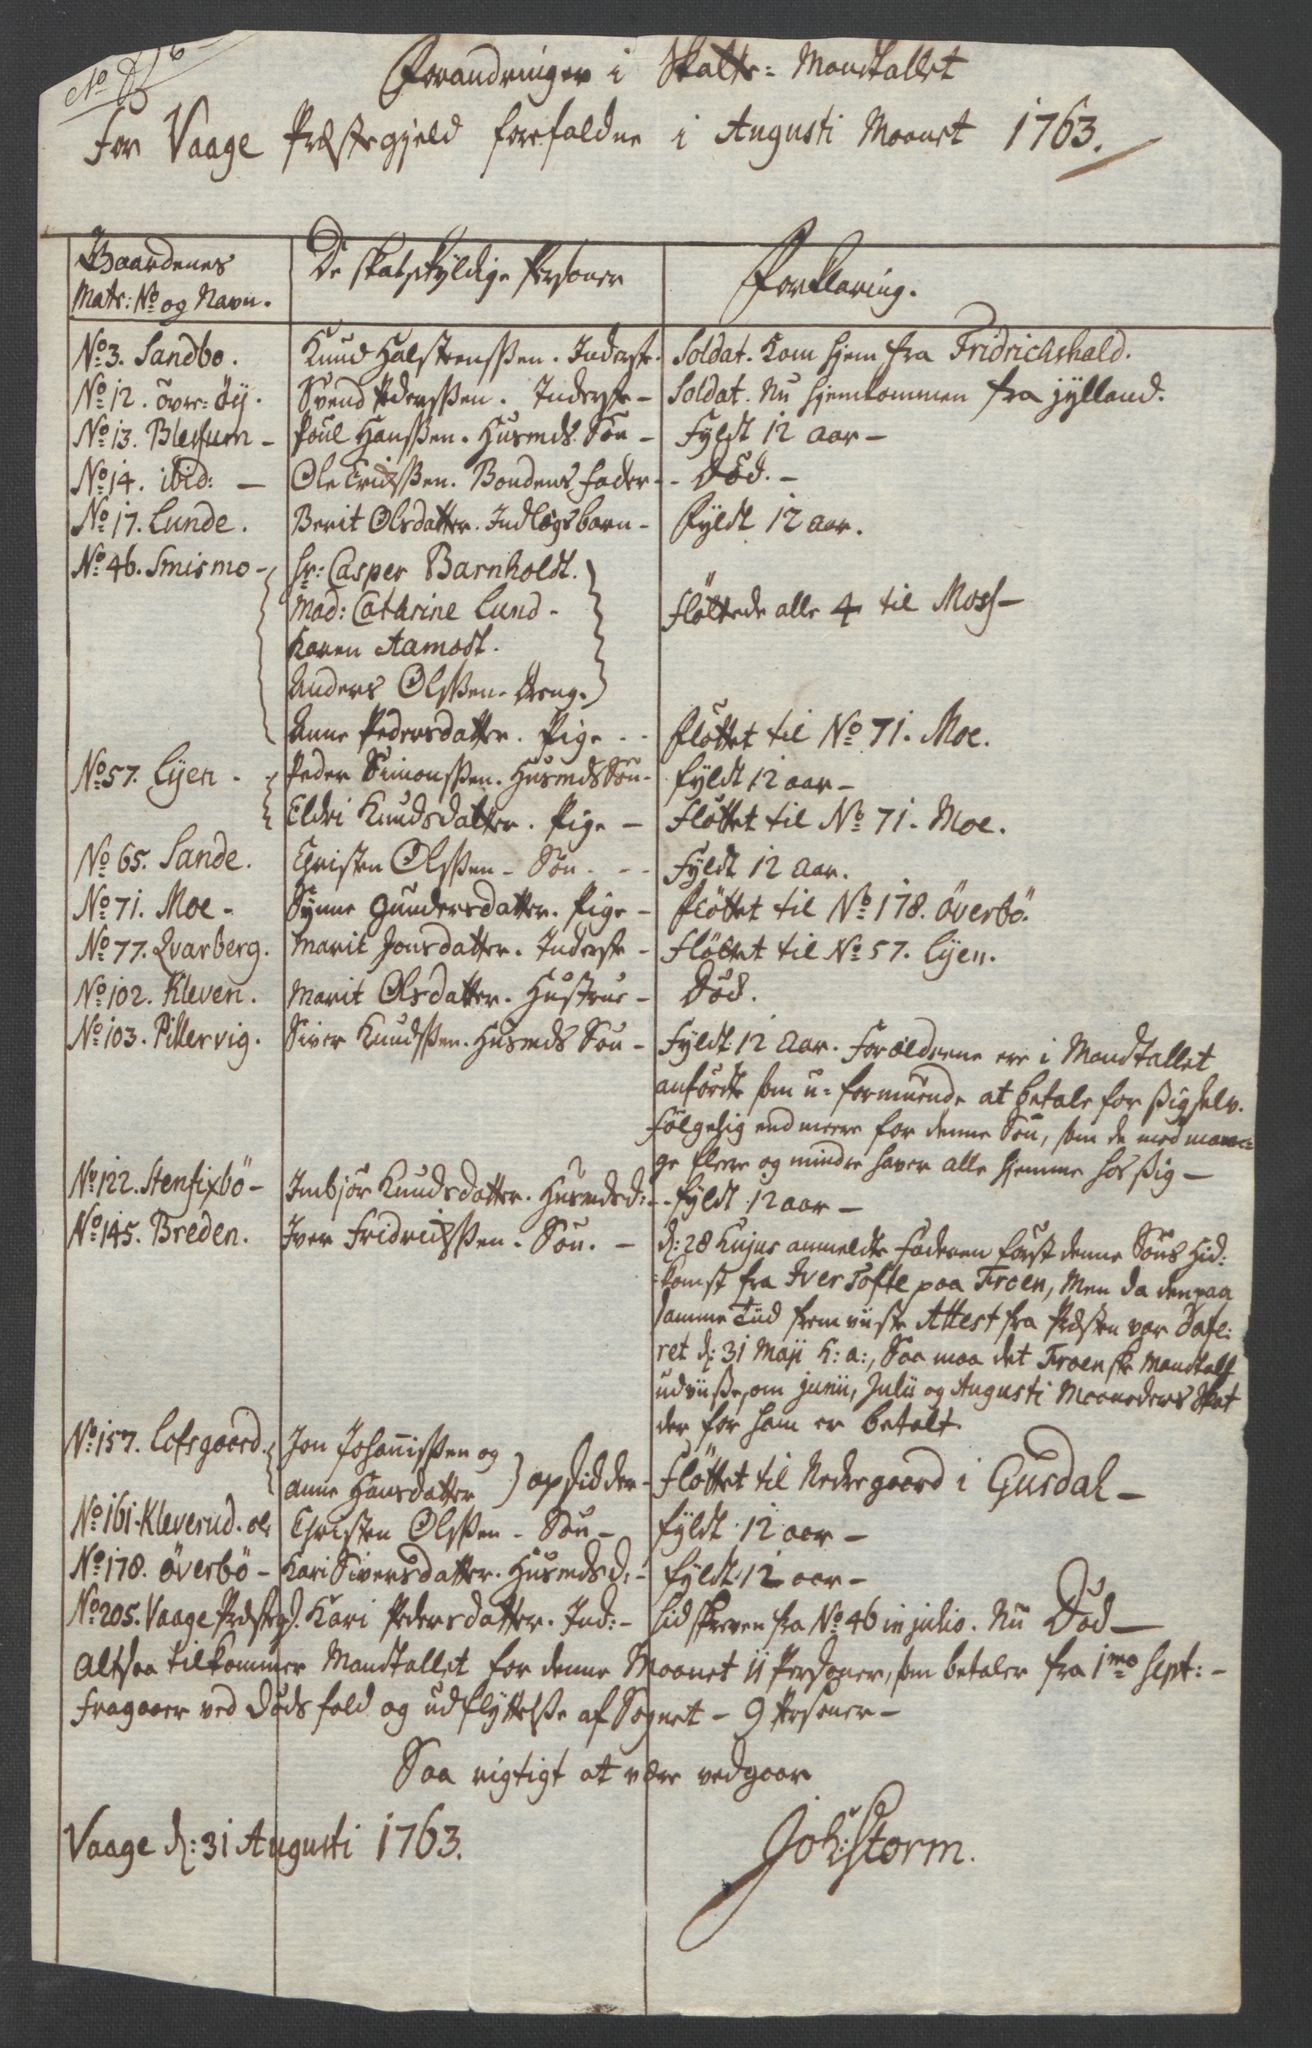 No
Forandringer i Skatte= Mandtallet
for Vaage Præstegjeld forefaldne i Augusti Maanet 1763.
Gaardenes
Matr: No og Navn.
De skatskyldige Personer
Forklaring.
No 3. Sandbo. Knud Halstenssen. Inderste. Soldat. Kom hjem fra Fridrichshald.
No 12. över= öy. Svend Pederssen. Inderste - Soldat. Nu hjemkommen fra Jylland.
No 13. Blessum - Poul Hanssen. Husmds Søn - Fyldt 12 aar -
No 14. ibid: - Ole Erichssen. Bondens Fader - - Död. -
No 17. Lunde. Berit Olsdatter. Indlægsbarn - Fyldt 12 aar.
No 46. Smismo - Hr: Casper Barnholdt.
Mad: Cathrine Lund - Fløttede alle 4 til Moss -
Karen Aamodt.
Anders Olssen. Dreng.
Anne Pedersdatter. Pige - - Fløttet til No 71. Moe.
No 57. Lyen - Peder Simonssen. Husmds Søn - fyldt 12 aar -
Eldri Knudsdatter. Pige - Fløttet til No 71. Moe.
No 65. Sande. Christen Olssen - Søn - - - Fyldt 12 aar.
No 71. Moe - Synne Gundersdatter. Pige - Fløttet til No 178. överbö.
No 77. Qvarberg. Marit Jonsdatter. Inderste - Fløttet til No 57. Lyen.
No 102. Kleven. Marit Olsdatter. Hustrue - Död.
No 103. Pillervig. Siver Knudssen. Husmds Søn - Fyldt 12 Aar. Forældrene ere i Mandtallet
anførdte som u=formuende at betale for sig selv.
følgelig end meere for denne Søn, som de med man=
ge flere og mindre haver alle hjemme hos sig -
No 122. Stenfixbö - Imbjör Knudsdatter. Husmdsd: - - fyldt 12 aar -
No 145. Breden. Iver Fridrichssen. Søn. - d: 28 Hujus anmeldte Faderen først denne Søns Hid=
komst fra Iver Tofte paa Froen, Men da den paa
samme Tiid fremviiste Attest fra Præsten var Date=
ret d: 31 Maji h: a:, Saa maa det Froenske Mandtall
udviise, om Junii, Julii og Augusti Maaneders Skat
der for ham er betalt.
No 157. Lofsgaard. Jon Johannissen og
Anne Hansdatter opsidder - Fløttet til Nedregaard i Gusdal -
No 161. Kleverud. Christen Olssen - Søn - fyldt 12 aar -
No 178. överbö - Kari Siversdatter. Husmdsd: - fyldt 12 aar -
No 205. Vaage Præstegd. Kari Pedersdatter. Ind: - hidskreven fra No 46 in julio. Nu Död -
Altsaa tilkommer Mandtallet for denne Maanet 11 Personer, som betaler fra 1mo Sept: -
Fragaaer ved Döds fald og udflyttelse af Sognet - 9 Personer -
Saa rigtigt at være vedgaar
Vaage d: 31 Augusti 1763.
Joh: Storm.